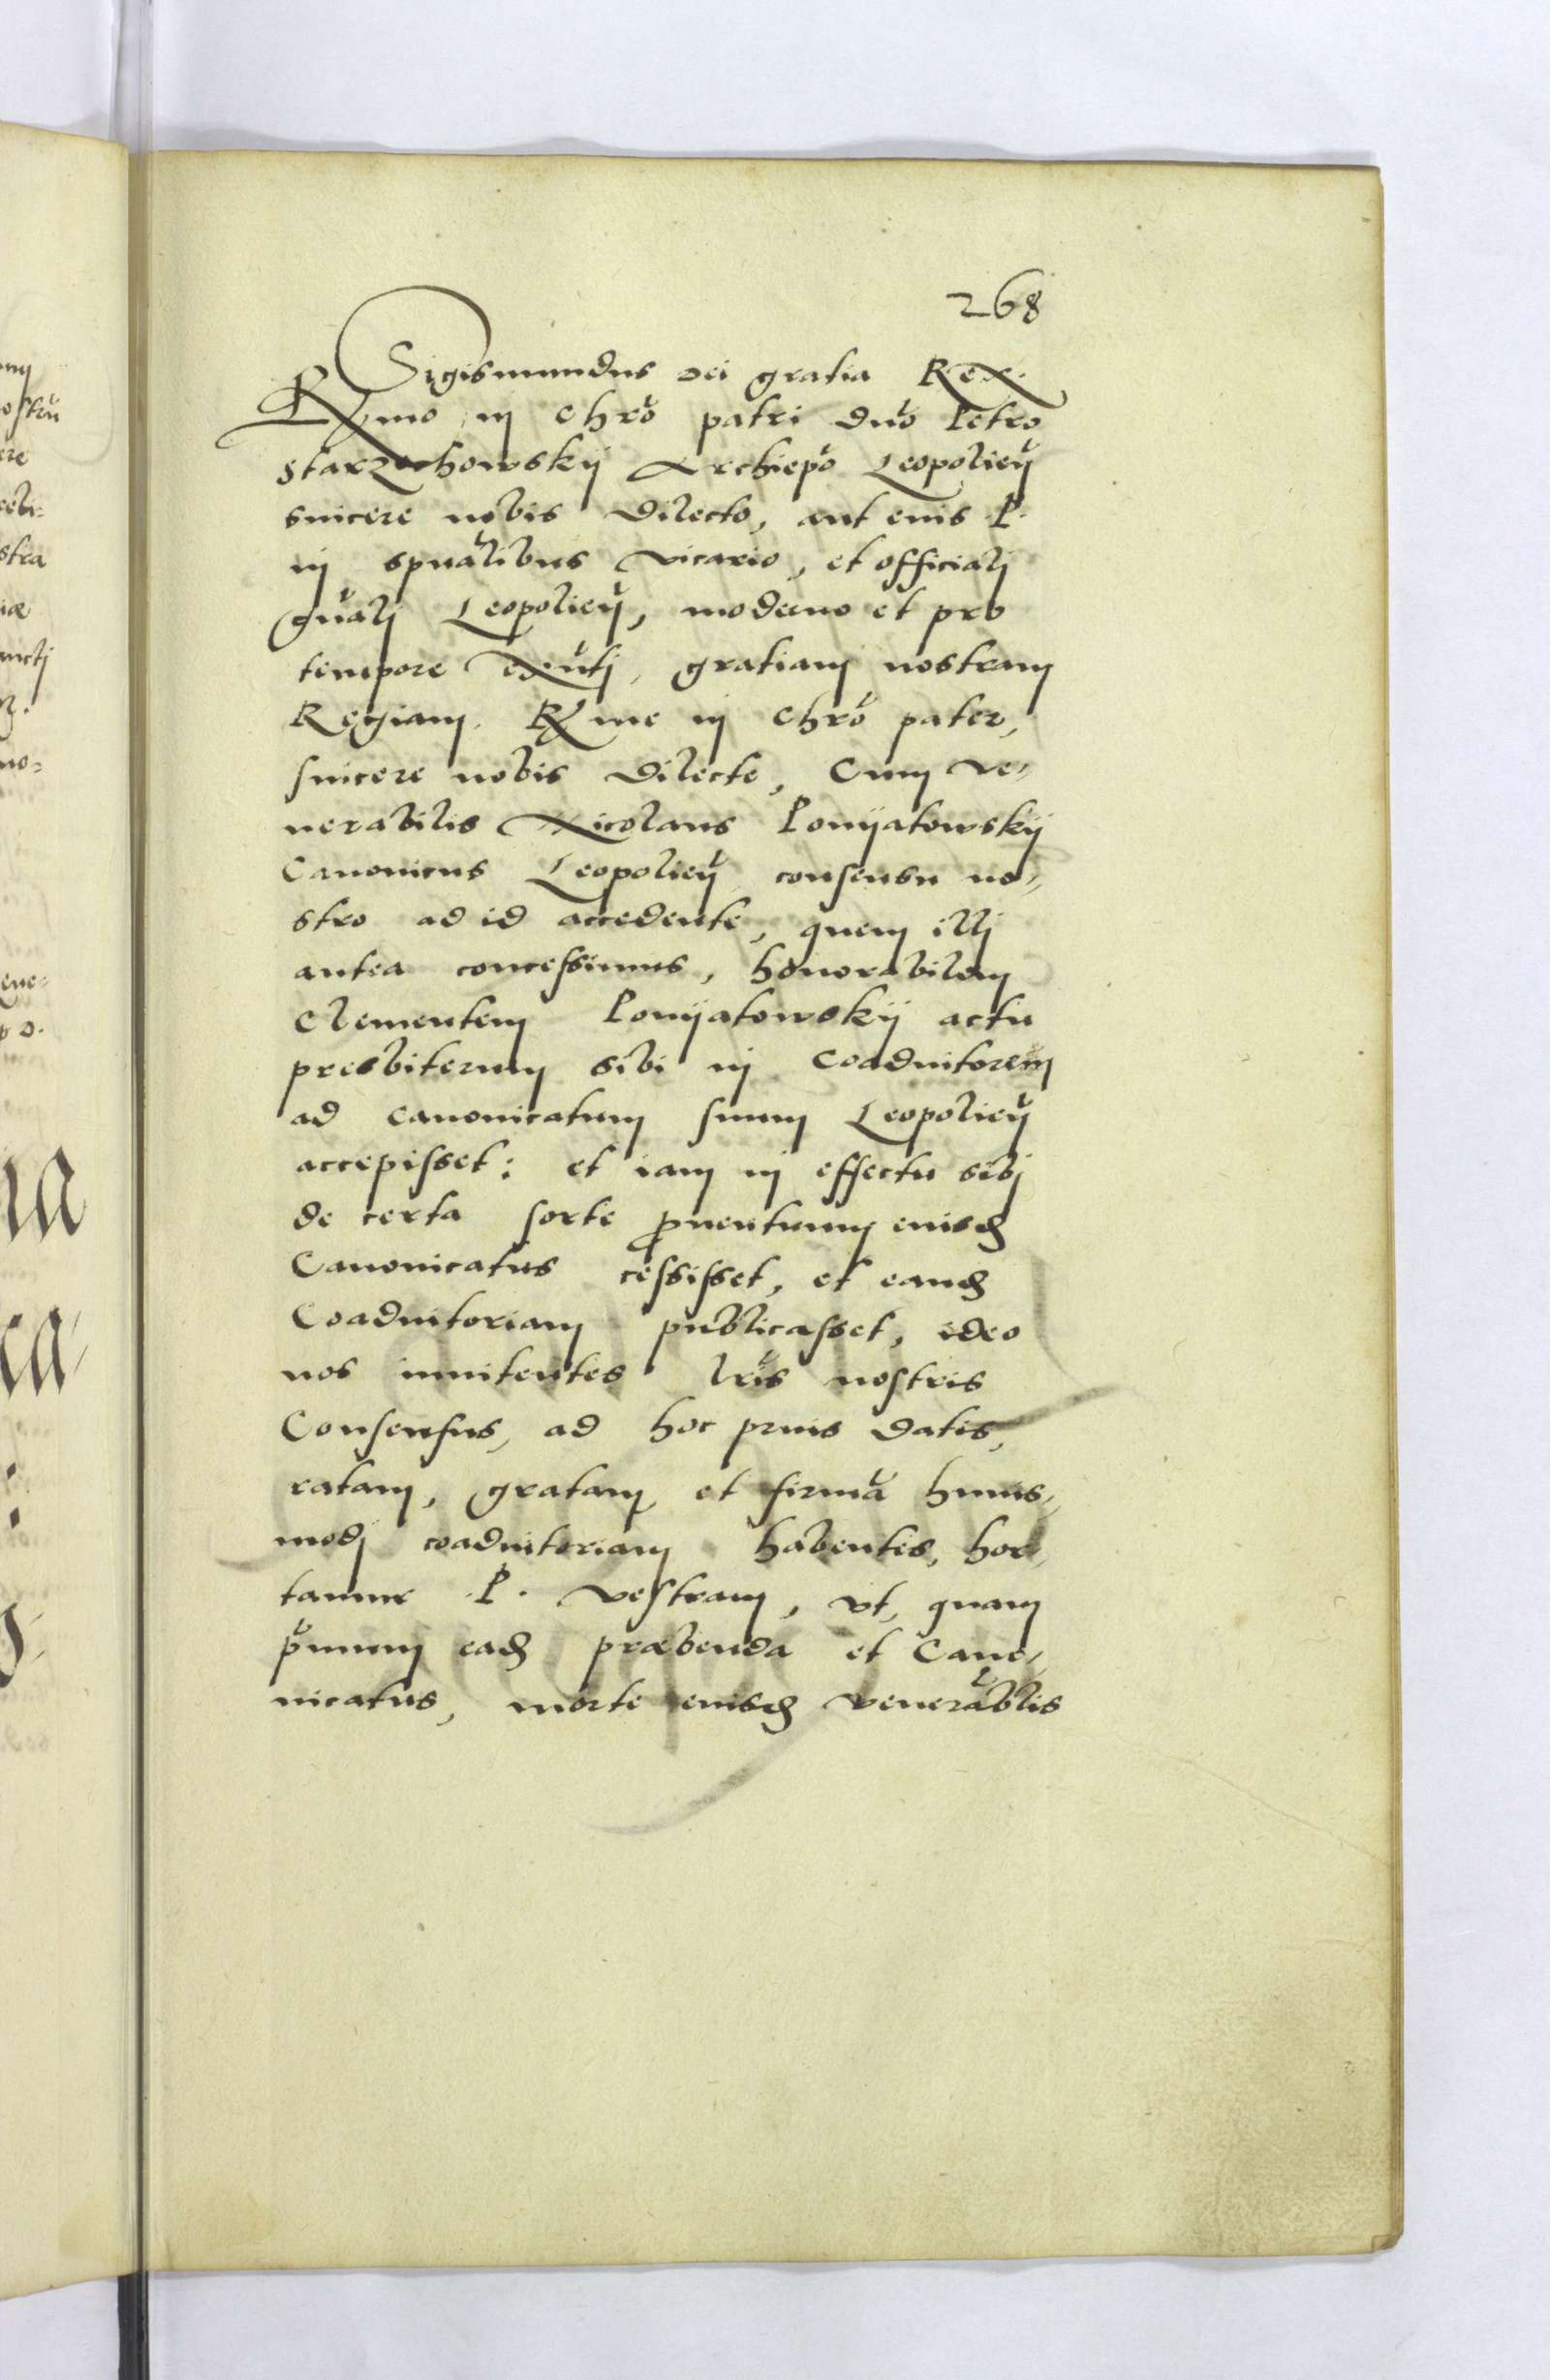 268
Sigismundus Dei gratia Rex.
Rx̃mo in Chrõ patri dnõ Petro
Starzechowskij Archiepõ Leopolieñ
sincere nobis dilecto, aut eius P.
in spualibus vicario, et officialj
gñalj Leopolieñ, moderno et pro
tempore exñtj, gratiam nostram
Regiam. Rx̃me in Chrõ pater,
sincere nobis dilecte, Cum ve-
nerabilis Nicolaus Ponijatowskij
Canonicus Leopolieñ consensu no-
stro ad id accedente, quem illj
antea concessimus, honorabilem
Clementem Ponijatowskij actu
presbiterum sibi in Coadiutorem
ad Canonicatum suum Leopolieñ
accepisset: et iam in effectu sibj
de certa sorte ꝓuentuum eiusd
Canonicatus cessisset, et eand
Coadiutoriam publicasset, ideo
nos innitentes lr̃is nostris
Consensus, ad hoc prius datis,
ratam, gratam et firmã huius-
modj coadiutoriam habentes, hor-
tamur P. vestram, vt, quam
p̃mum ead præbenda et Cano-
nicatus, morte eiusd venerãblis
ostrũ
ere
stra
iæ
ancti
no=
ene=